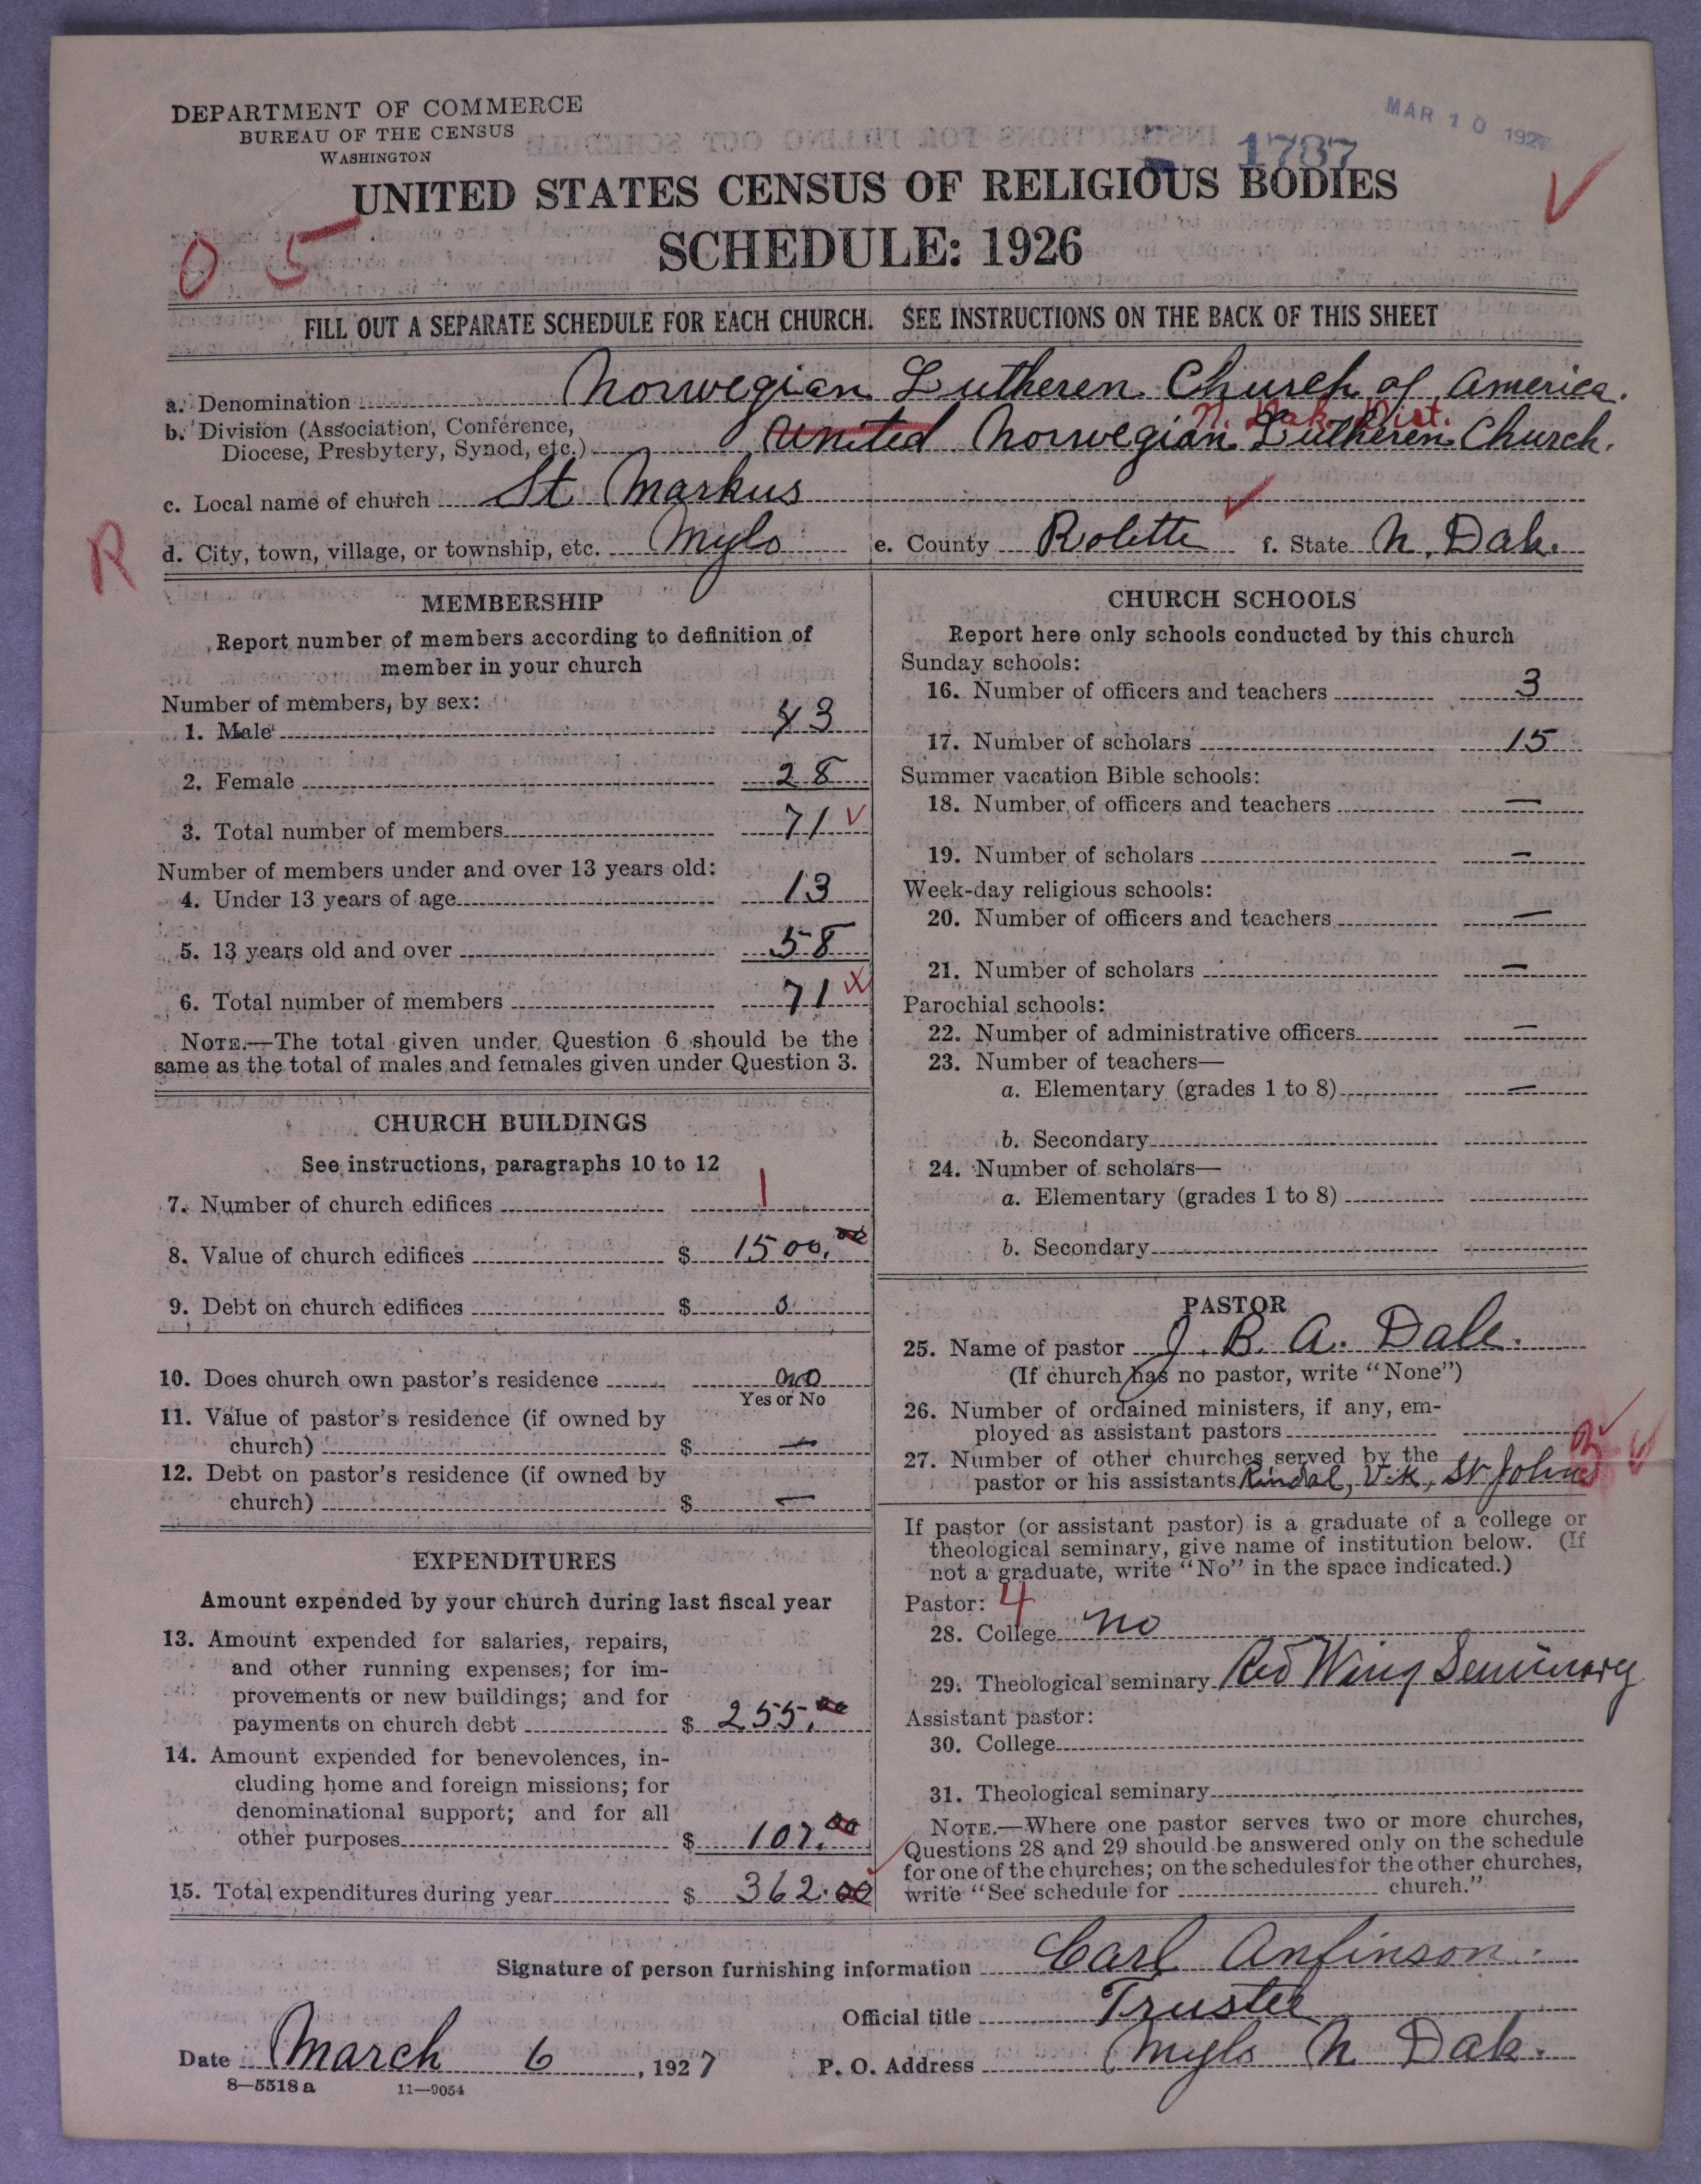 DEPARTMENT OF COMMERCE
BUREAU OF THE CENSUS
WASHINGTON
MAR 10 192
1787
UNITED STATES CENSUS OF RELIGIOUS BODIES
SCHEDULE: 1926
0 5
FILL OUT A SEPARATE SCHEDULE FOR EACH CHURCH. SEE INSTRUCTIONS ON THE BACK OF THIS SHEET
a. Denomination Norwegian Lutheren Church of America.
N. Dak. Dist.
b. Division (Association, Conference, Diocese, Presbytery, Synod, etc.) United Norwegian Lutheren Church.
c. Local name of church St Markus
R
d. City, town, village, or township, etc. Mylo e. County Rolette f. State N. Dak.
MEMBERSHIP
Report number of members according to definition of
member in your church
Number of members, by sex:
1. Male 43
2. Female 28
3. Total number of members 71
Number of members under and over 13 years old:
4. Under 13 years of age 13
5. 13 years old and over 58
6. Total number of members 71
NOTE.—The total given under Question 6 should be the
same as the total of males and females given under Question 3.
CHURCH BUILDINGS
See instructions, paragraphs 10 to 12
7. Number of church edifices 1
8. Value of church edifices $ 1500.00
9. Debt on church edifices $ 0
10. Does church own pastor's residence no
Yes or No
11. Value of pastor's residence (if owned by
church) $ —
12. Debt on pastor's residence (if owned by
church) $ —
EXPENDITURES
Amount expended by your church during last fiscal year
13. Amount expended for salaries, repairs,
and other running expenses; for im-
provements or new buildings; and for
payments on church debt $ 255.00
14. Amount expended for benevolences, in-
cluding home and foreign missions; for
denominational support; and for all
other purposes $ 107.00
15. Total expenditures during year $ 362.00
CHURCH SCHOOLS
Report here only schools conducted by this church
Sunday schools:
16. Number of officers and teachers 3
17. Number of scholars 15
Summer vacation Bible schools:
18. Number of officers and teachers —
19. Number of scholars —
Week-day religious schools:
20. Number of officers and teachers —
21. Number of scholars —
Parochial schools:
22. Number of administrative officers —
23. Number of teachers—
a. Elementary (grades 1 to 8) —
b. Secondary
24. Number of scholars—
a. Elementary (grades 1 to 8)
b. Secondary
PASTOR
25. Name of pastor J. B. A. Dale.
(If church has no pastor, write "None")
26. Number of ordained ministers, if any, em-
ployed as assistant pastors
27. Number of other churches served by the
pastor or his assistants Rindal, Vik, St Johns
If pastor (or assistant pastor) is a graduate of a college or
theological seminary, give name of institution below. (If
not a graduate, write "No" in the space indicated.)
Pastor: 4
28. College no
29. Theological seminary Red Wing Seminary
Assistant pastor:
30. College
31. Theological seminary
NOTE.—Where one pastor serves two or more churches,
Questions 28 and 29 should be answered only on the schedule
for one of the churches; on the schedules for the other churches,
write "See schedule for church."
Signature of person furnishing information Carl Anfinson.
Official title Trustee
Date March 6, 1927 P. O. Address Mylo N Dak.
8—5518 a 11—9054